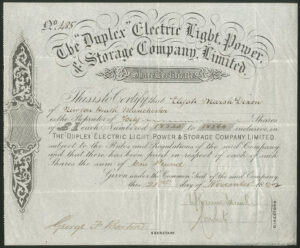 No. 485
The "Duplex" Electric Light, Power,
& Storage Company, Limited.
Share Certificate
This is to Certify that Elijah Dixon
of Newton Heath Manchester
is the Proprietor of Forty Shares
of £1 each Numbered to inclusive, in
THE DUPLEX ELECTRIC LIGHT POWER & STORAGE COMPANY, LIMITED,
subject to the Rules and Regulations of the said Company
and that there has been paid in respect of each of such
Shares the sum of One Pound
Given under the Common Seal of the said Company
this day of November 1882
George F